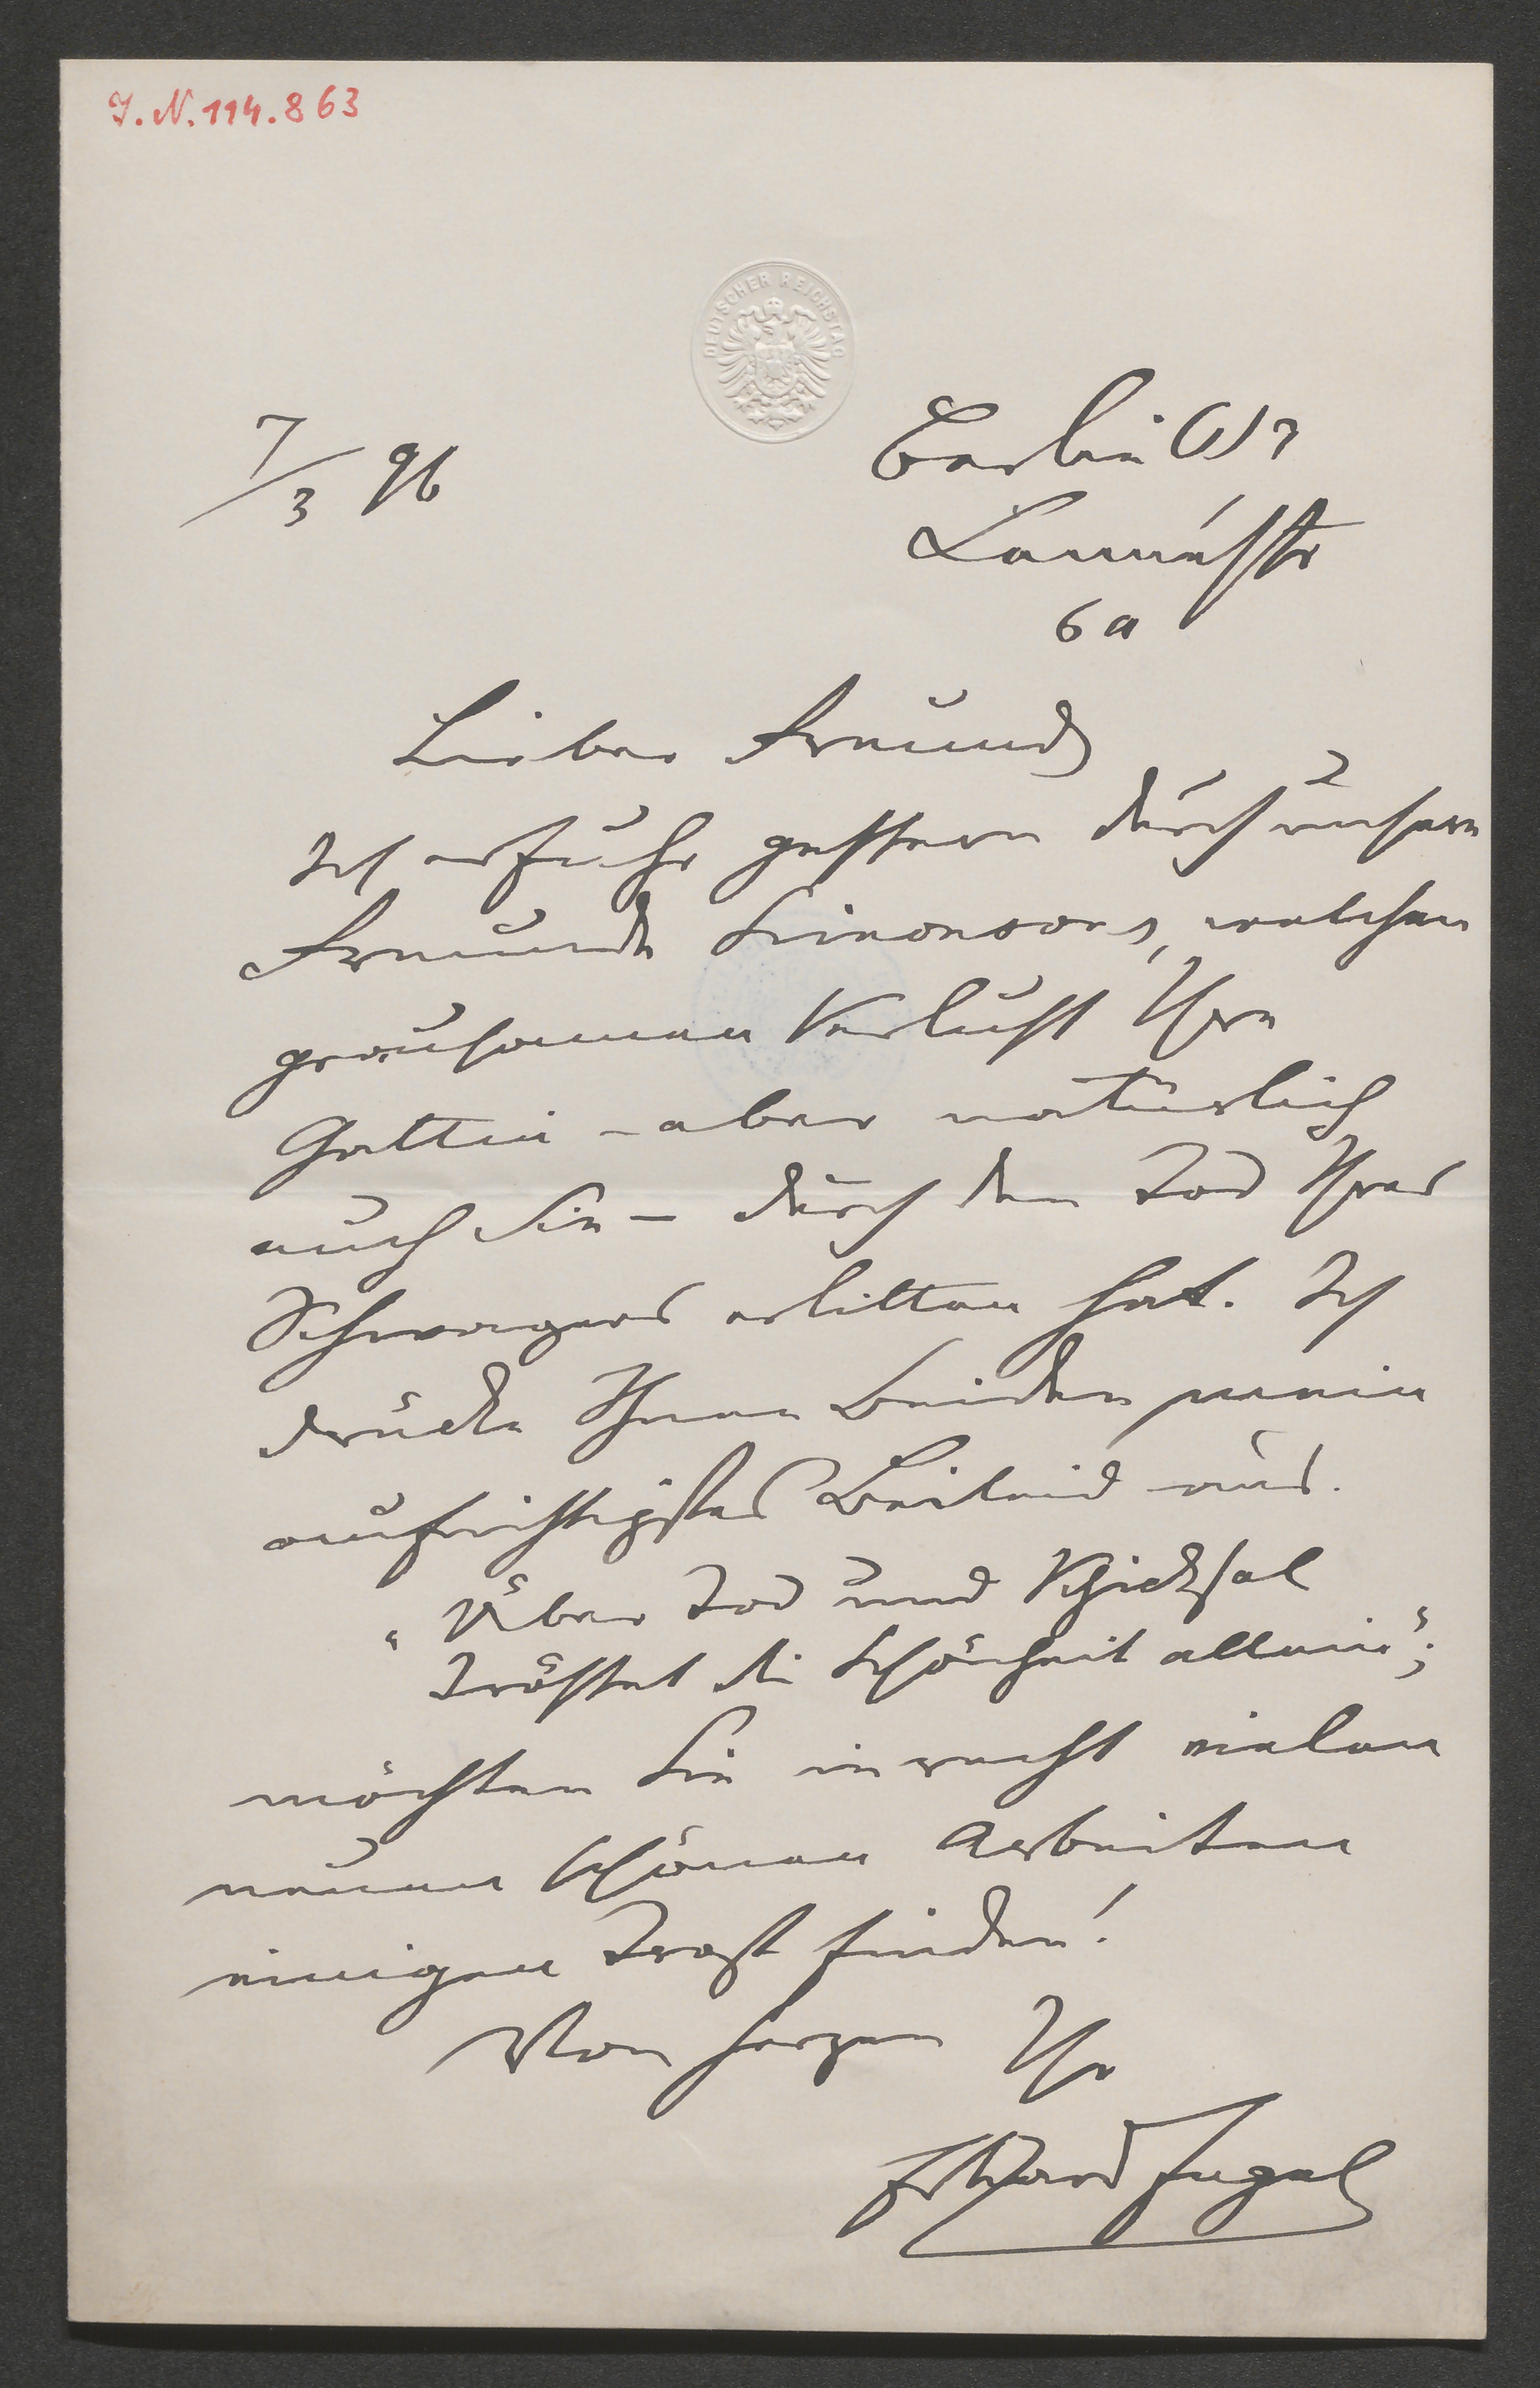 I. N. 114.863
DEUTSCHER REICHSTAG
7/3 96
Berlin W
Lennéstr
6a
Lieber Freund
Ich erfuhr gestern durch unsern
Freund welchen
grausamen Verlust Ihre
Gattin – aber natürlich
auch Sie – durch den Tod Ihres
Schwagers erlitten hat. Ich
drücke Ihnen Beiden mein
aufrichtigstes Beileid aus.
„Über Tod und Schicksal
Tröstet die Schönheit allein“;
möchten Sie in recht vielen
neuen schönen Arbeiten
einigen Trost finden!
Von Herzen Ihr